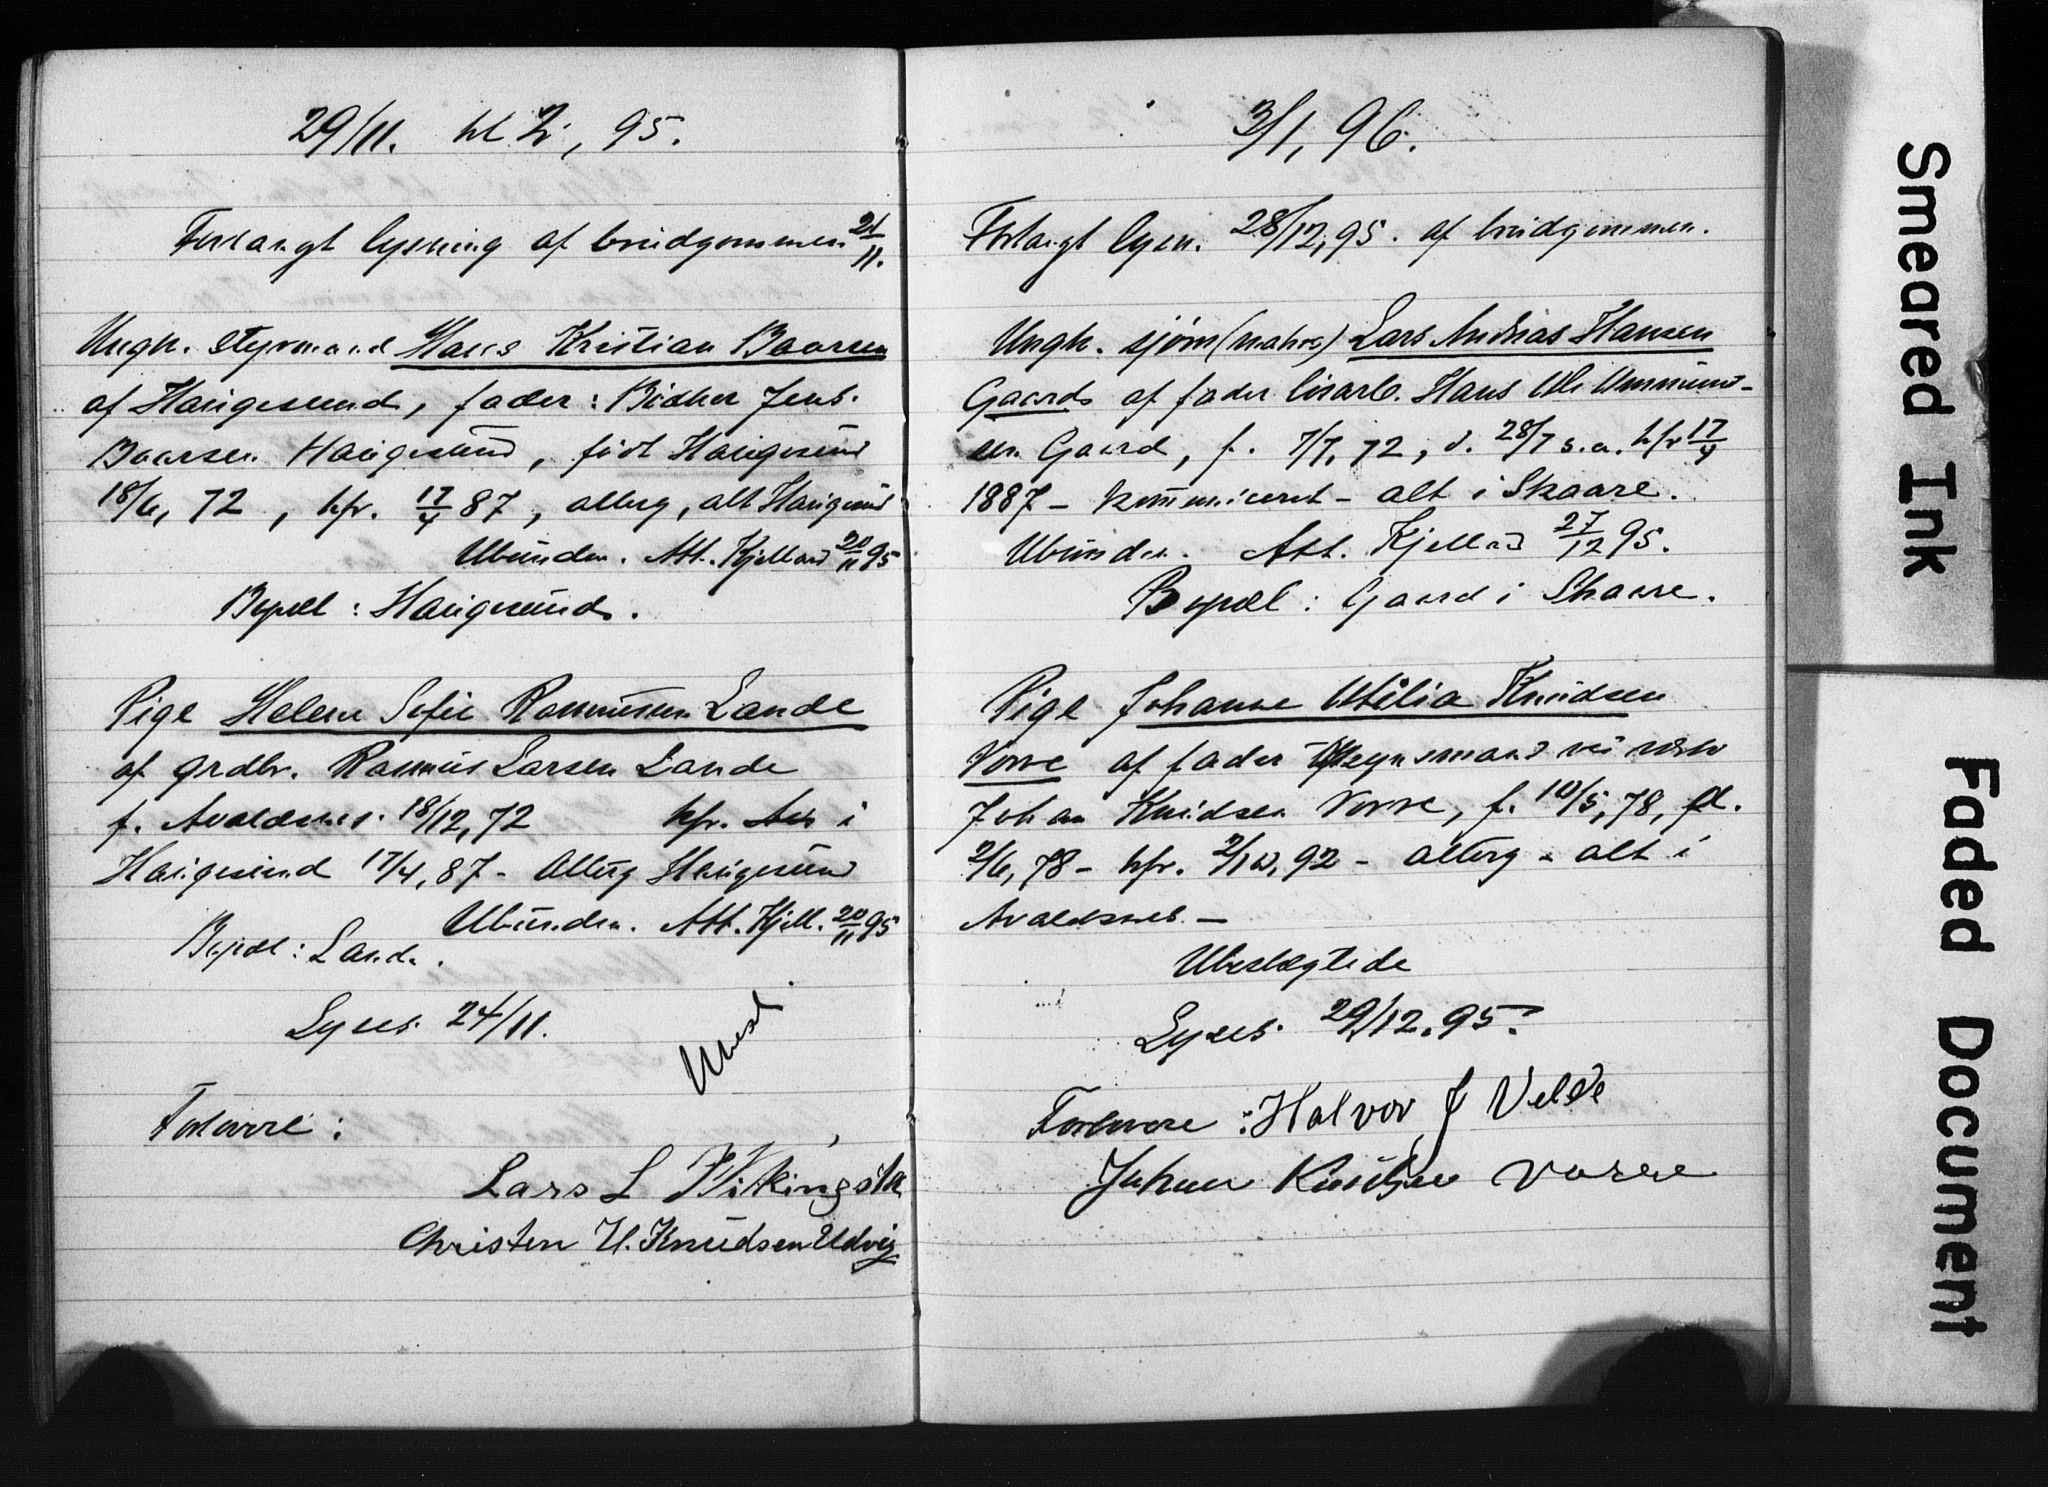 29/11. kl 2, 95.
Forlangt lysning af brudgommen 21/11.
Ungk. styrmand Hans Kristian Baarsen
af Haugesund, fader: Bødker Jens
Baarsen Haugesund, født Haugesund
18/6, 72, kfr. 17/4 87, alterg, alt Haugesund
Ubunden. Att. Kjelland 20/11 95
Bopæl: Haugesund.
Pige Helene Sofie Rasmussen Lande
af grdbr. Rasmus Larsen Lande
f. Avaldsnes. 18/12, 72 kfr. i
Haugesund 17/4, 87 - Alterg Haugesund
Ubunden. Att. Kjell. 20/11 95
Bopæl: Lande.
Lyses 24/11.
Ubesl.
Forlovere:
Lars L Vikingsta
Christen H. Knudsen Udvig
3/1, 96.
Forlangt lysn. 28/12, 95. af brudgommen.
Ungk. sjøm (matros) Lars Andreas Hansen
Gaard af fader Hans Ole Ommund-
sen Gaard, f. 7/7, 72, d. 28/7 s.a. kfr 17/4
1887 - kommuniceret - alt i Skaare.
Ubunden. Att. Kjelland 27/12 95.
Bopæl: Gaard i Skaare.
Pige Johanne Otilia Knudsen
Vorre af fader
Johan Knudsen Vorre, f. 10/5, 78, d.
2/6, 78 - kfr. 2/10, 92 - alterg - alt i
Avaldsnes -
Ubeslægtede
Lyses 29/12. 95.
Forlovere: Halvor J Velde
Johan Knudsen Vorre
Smeared Ink
Faded Document